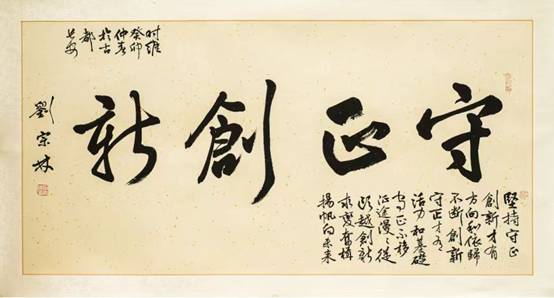 守正創新
堅持守正
創新才有
方向和依歸
不断創新
守正才有
活力和基礎
守正不移
征途漫々從
头越創新
求變奮楫
揚帆向未来
时维
癸卯
仲春
於古
都
长安
劉宗林